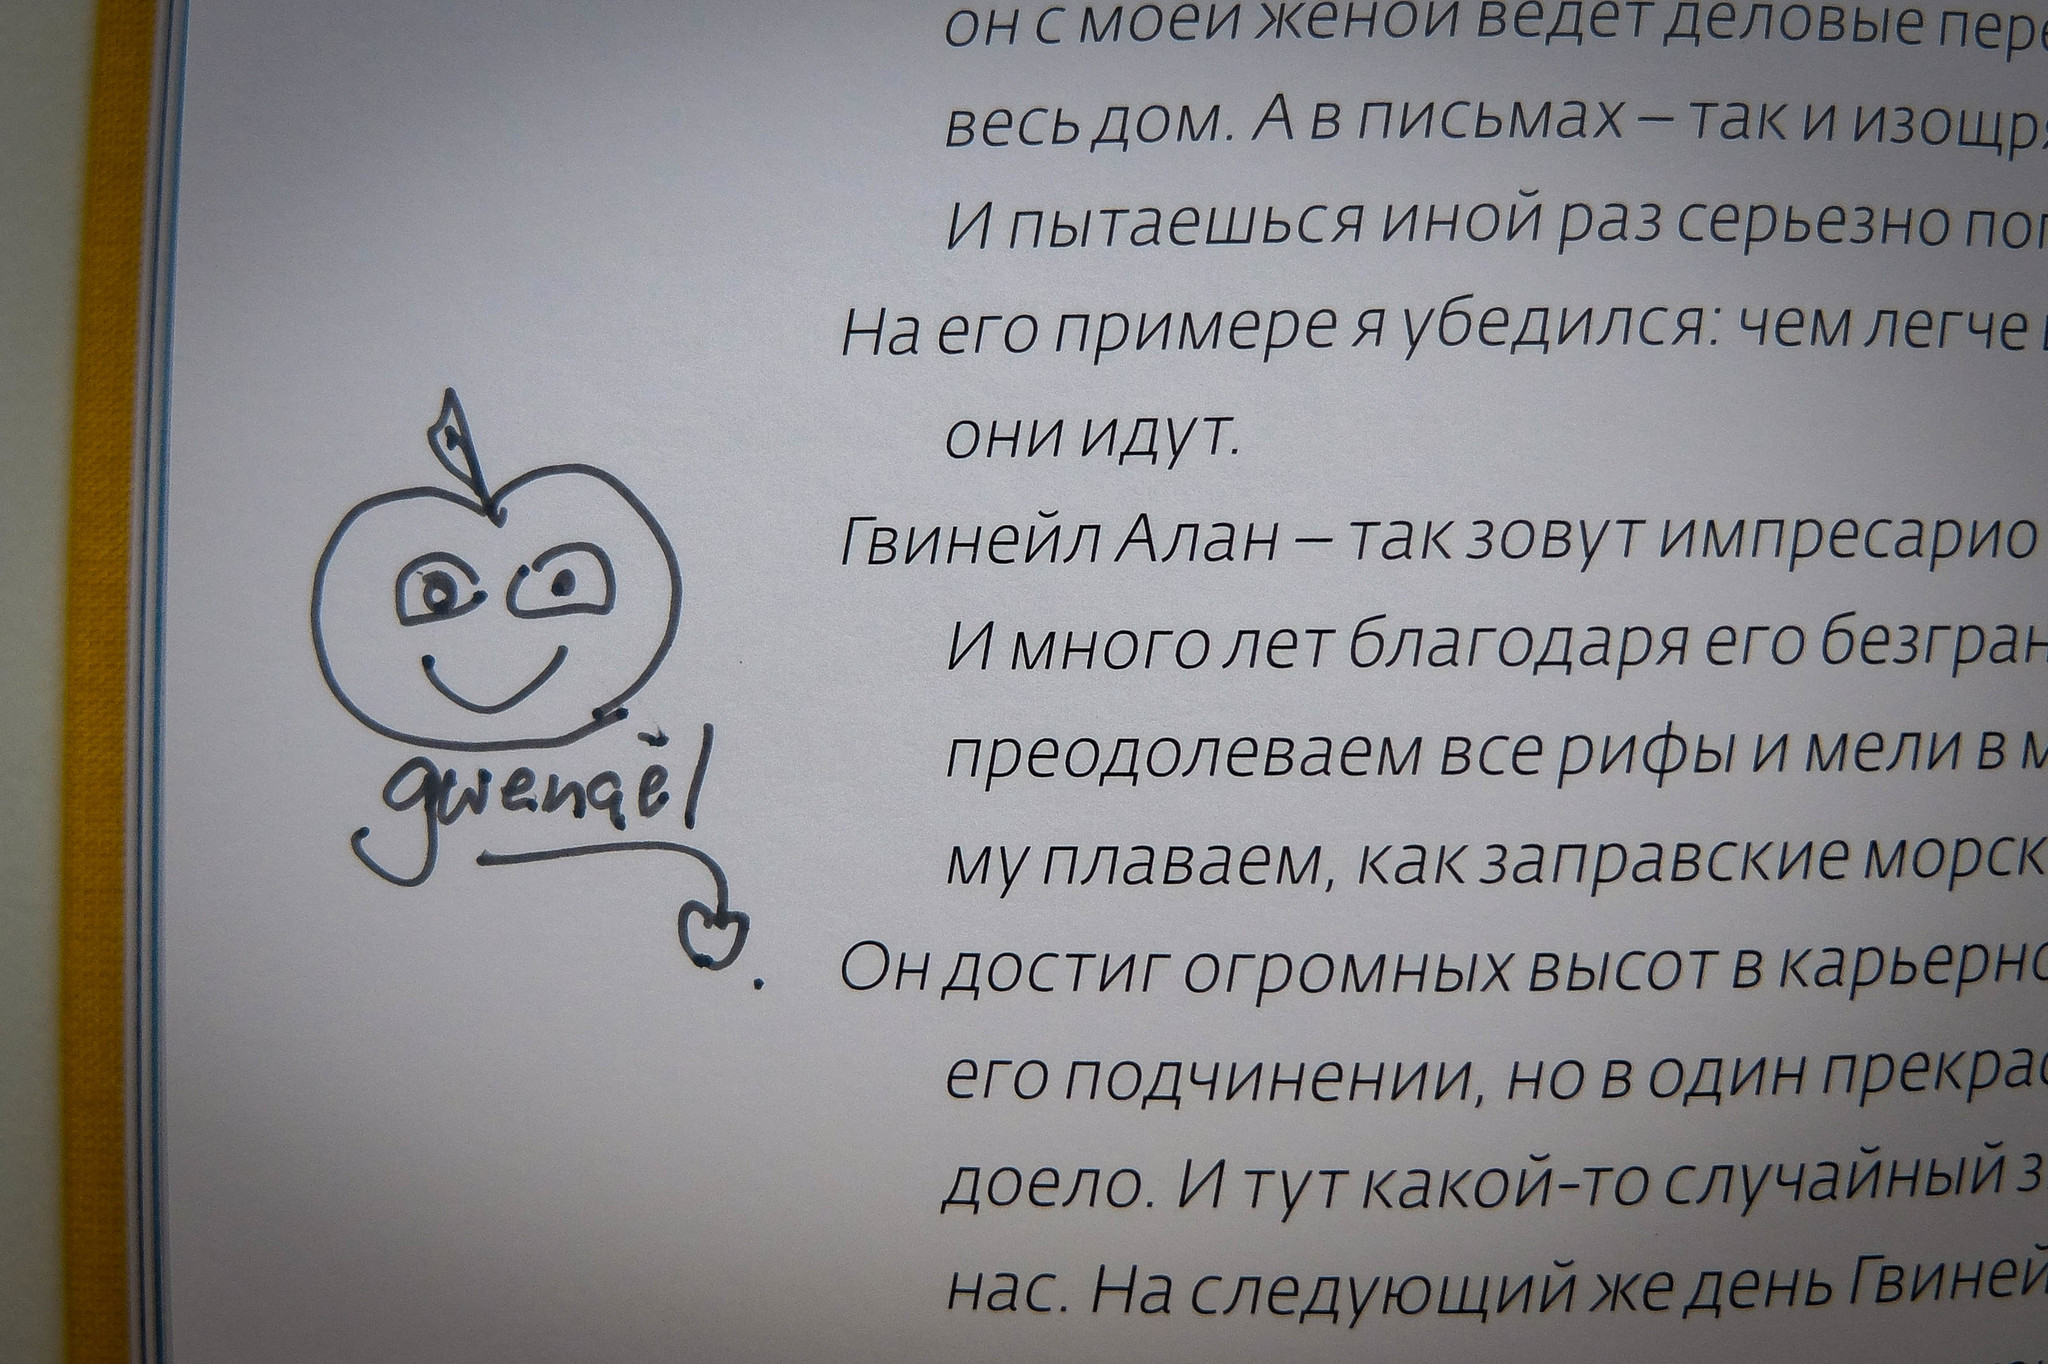 он с моей женой ведет деловые пере
весь дом. А в письмах – так и изощря
И пытаешься иной раз серьезно пог
На его примере я убедился: чем легче
они идут.
Гвинейл Алан – так зовут импресарио
И много лет благодаря его безгран
преодолеваем все рифы и мели в м
му плаваем, как заправские морск
Он достиг огромных высот в карьерно
его подчинении, но в один прекрас
доело. И тут какой-то случайный з
нас. На следующий же день Гвиней
gwenaël